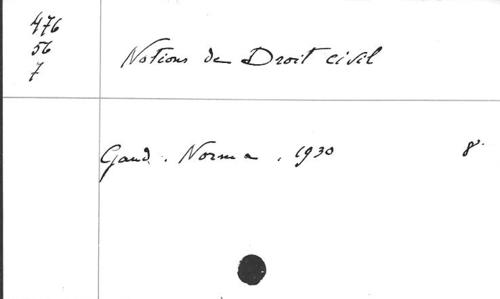 476
56
7
Notions de Droit civil
Gand. Norma. 1930 8°